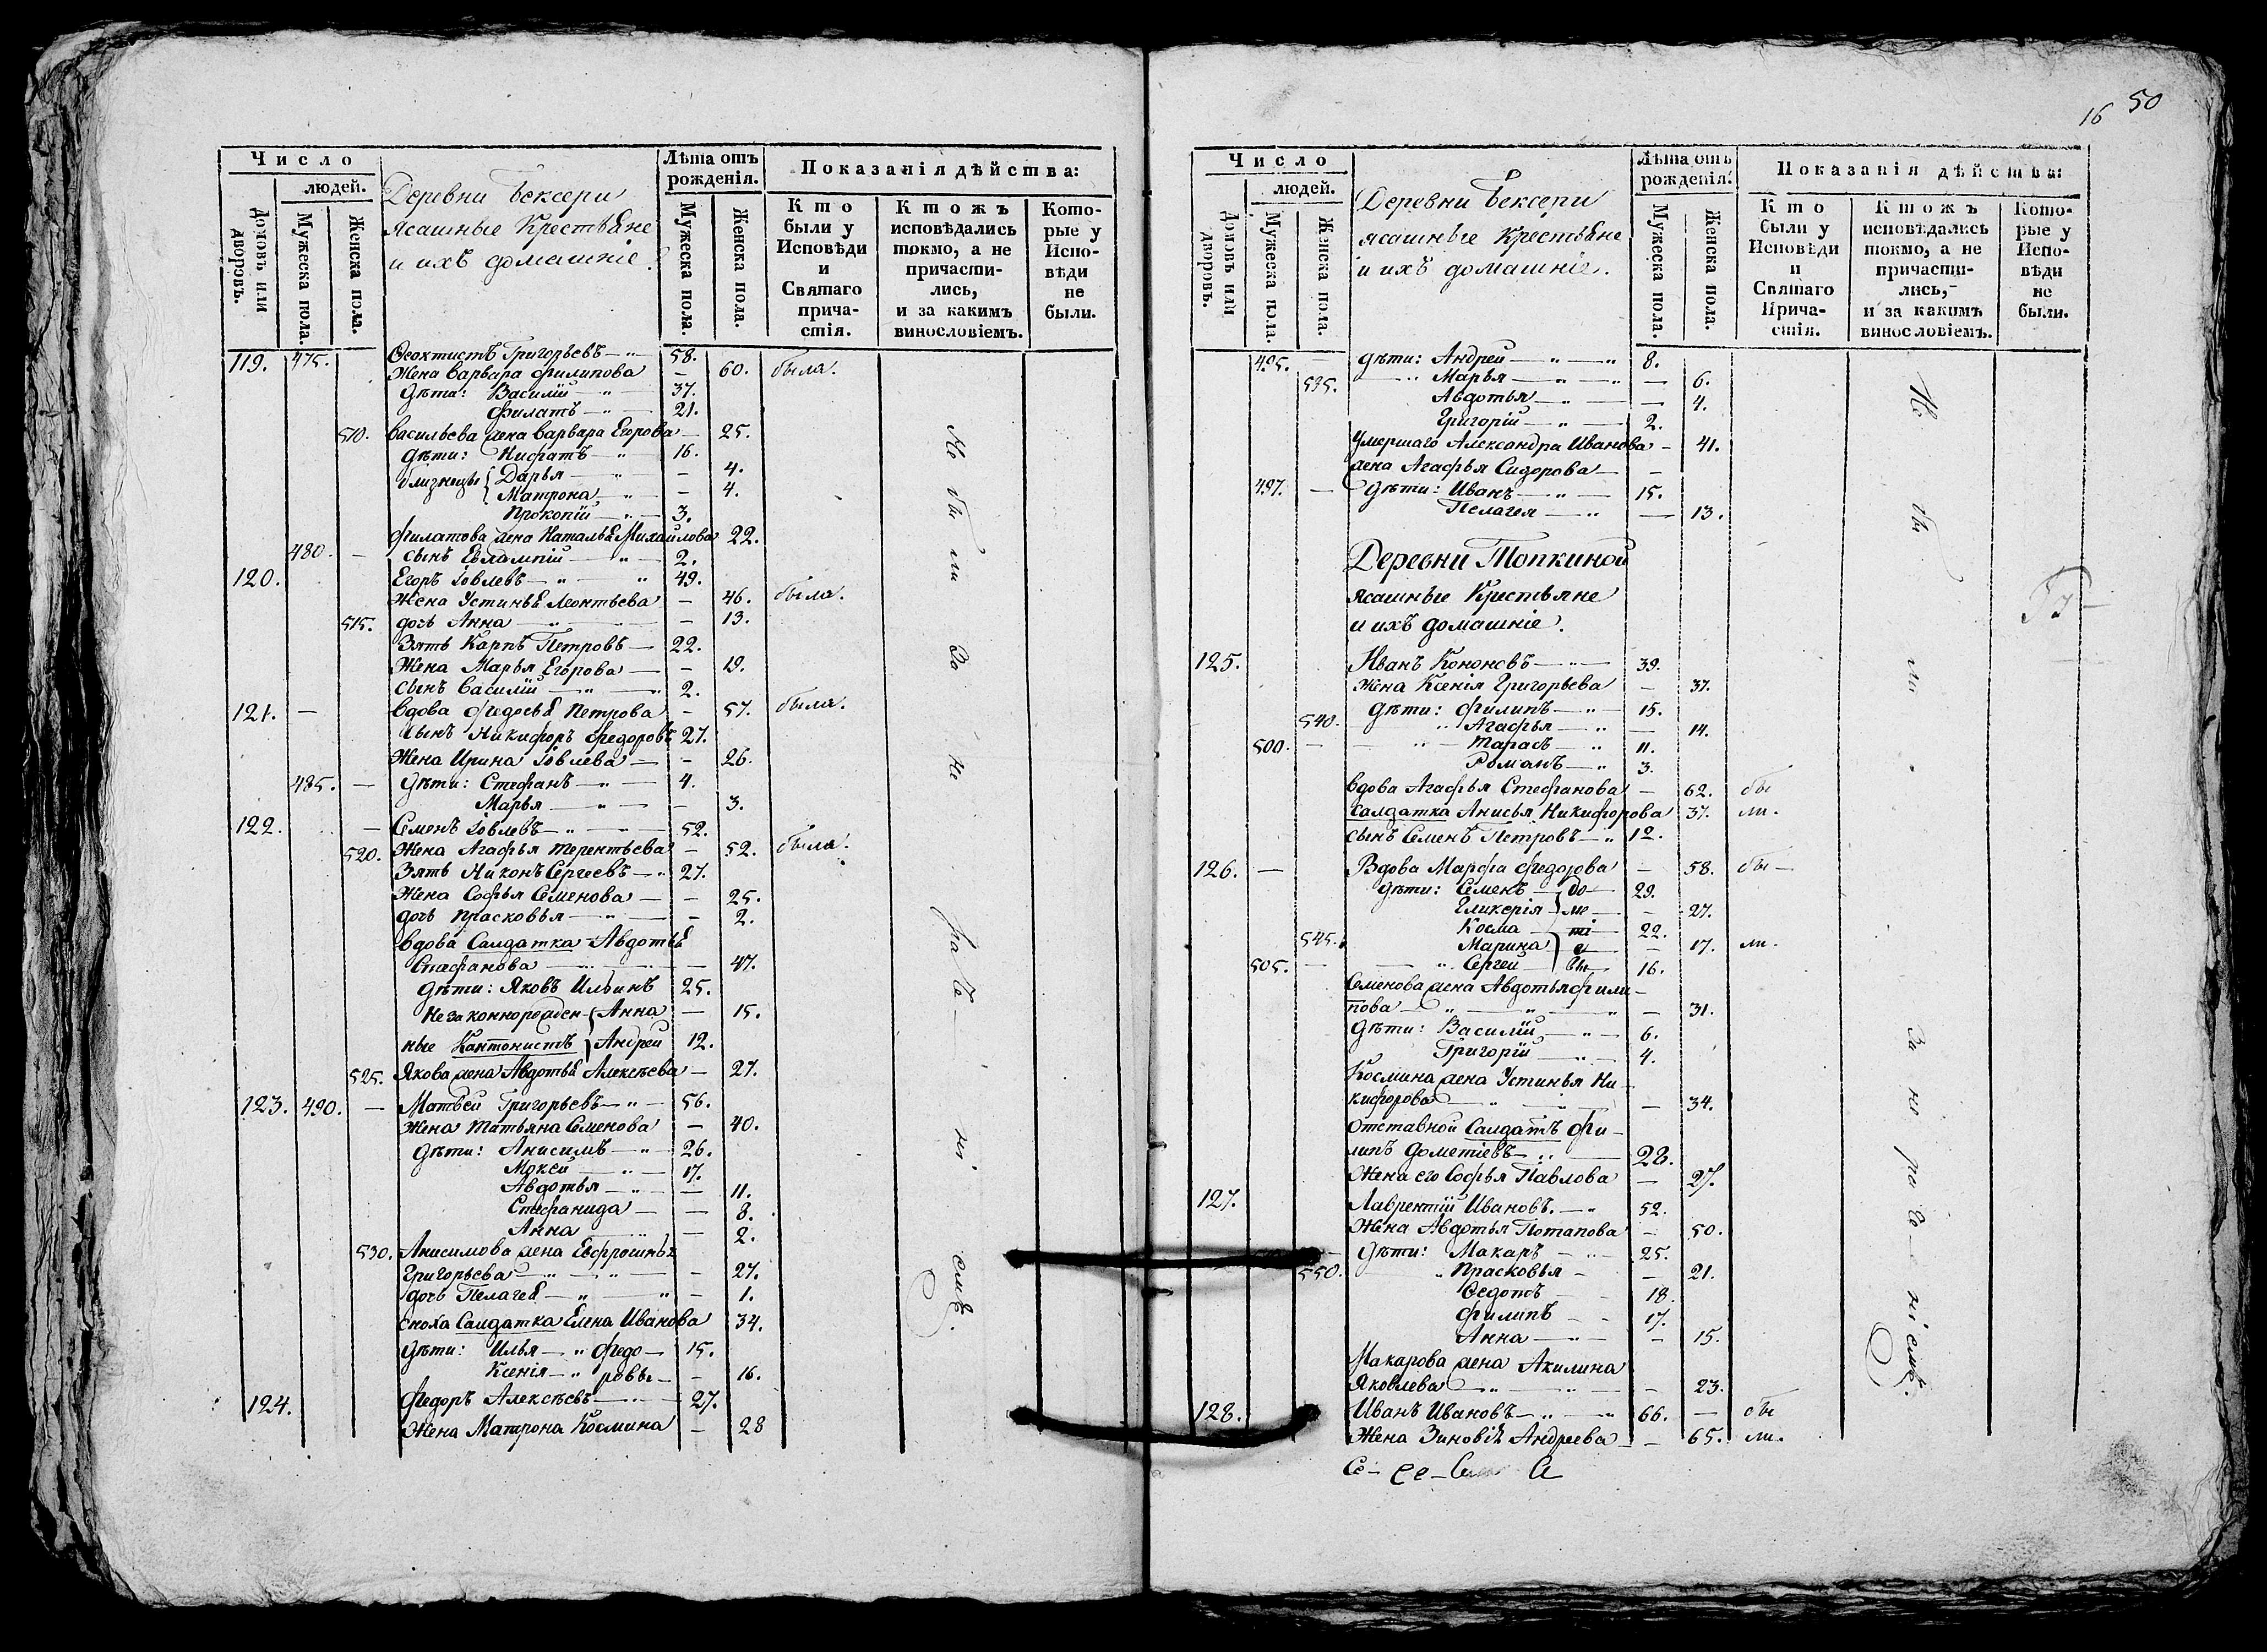 16 50
Число
людей.
Домовъ или дворовъ.
Мужеска пола.
Женска пола.
Деревни Бексери
ясашные Крестьѧне
и ихъ домашніе.
Лѣта отъ рожденія.
Мужеска пола.
Женска пола.
Показанія дѣйства:
Кто были у Исповѣди и Святаго причастія.
Ктожъ исповѣдались токмо, а не причастились, и за какимъ винословіемъ.
Которые у Исповѣди не были.
119. 475. Ѳеоктистъ Григорьевъ — 58.
Жена Варвара Филипова — 60. была.
дѣти: Василій — 37.
Филатъ — 21.
510. Васильева жена Варвара Егорова — 25.
дѣти: Кифатъ — 16.
близнецы Дарья — 4.
Матрона — 4.
Прокопій — 3.
Филатова жена Наталья Михайлова 22.
480. — сынъ Евлампій — 2.
120. Егоръ Іовлевъ — 49.
Жена Устинья Леонтьева — 46. была.
515. дочь Анна — 13.
Зять Карпъ Петровъ — 22.
Жена Марья Егорова — 19.
сынъ Василій — 2.
121. — Вдова Федосья Петрова — 57. была.
сынъ Никифоръ Федоровъ 27.
Жена Ирина Іовлева — 26.
485. — дѣти: Стефанъ — 4.
Марья — 3.
122. — Семенъ Іовлевъ — 52.
520. Жена Агафья Терентьева — 52. была.
Зять Никонъ Сергеевъ — 27.
Жена Софья Семенова — 25.
дочь Прасковья — 2.
вдова Салдатка Авдотья
Стефанова — 47.
дѣти: Яковъ Ильинъ 25.
Незаконнорожден- Анна — 15.
ные Кантонистъ Андрей 12.
525. Якова жена Авдотья Алексѣева — 27.
123. 490. — Матвей Григорьевъ — 56.
Жена Татьяна Семенова — 40.
дѣти: Анисимъ — 26.
Мокей — 17.
Авдотья — 11.
Стефанида — 8.
Анна — 2.
530. Анисимова жена Евфросинья
Григорьева — 27.
дочь Пелагея — 1.
сноха Салдатка Елена Иванова 34.
дѣти: Илья — Федо- 15.
Ксенія — ровы — 16.
124. Федоръ Алексѣевъ — 27.
Жена Матрона Космина — 28
Не бы ли за не раче ні емъ.
Число
людей.
Домовъ или дворовъ.
Мужеска пола.
Женска пола.
Деревни Бексери
ясашные Крестьѧне
и ихъ домашніе.
Лѣта отъ рожденія.
Мужеска пола.
Женска пола.
Показанія дѣйства:
Кто были у Исповѣди и Святаго Причастія.
Ктожъ исповѣдались токмо, а не причастились, и за какимъ винословіемъ.
Которые у Исповѣди не были.
495. — дѣти: Андрей — 8.
535. Марья — 6.
Авдотья — 4.
Григорій — 2.
Умершаго Александра Иванова — 41.
жена Агафья Сидорова —
497. — дѣти: Иванъ — 15.
Пелагея — 13.
Деревни Топкиной
ясашные Крестьяне
и ихъ домашніе.
125. Иванъ Кононовъ — 39.
Жена Ксенія Григорьева — 37.
дѣти: Филипъ — 15.
540. Агафья — 14.
500. — Тарасъ — 11.
Романъ — 3.
Вдова Агафья Стефанова — 62. бы
Салдатка Анисья Никифорова 37. ли.
сынъ Семенъ Петровъ — 12.
126. — Вдова Марфа Федорова — 58. бы —
дѣти: Семенъ — до — 29.
Гликерія — ме — 27.
Косма — ті — 22.
545. Марина — е — 17. ли.
505. — Сергей — вы — 16.
Семенова жена Авдотья Фили-
пова — 31.
дѣти: Василій — 6.
Григорій — 4.
Космина жена Устинья Ни-
кифорова — 34.
Отставной Салдатъ Фи-
липъ Дометіевъ — 28.
Жена его Софья Павлова — 27.
127. Лаврентій Ивановъ — 52.
Жена Авдотья Потапова — 50.
дѣти: Макаръ — 25.
550. Прасковья — 21.
Ѳедотъ — 18.
Филипъ — 17.
Анна — 15.
Макарова жена Акилина
Яковлева — 23.
128. Иванъ Ивановъ — 66. — бы
Жена Зиновія Андреева — 65. ли.
Не бы ли за не ра че ніемъ.